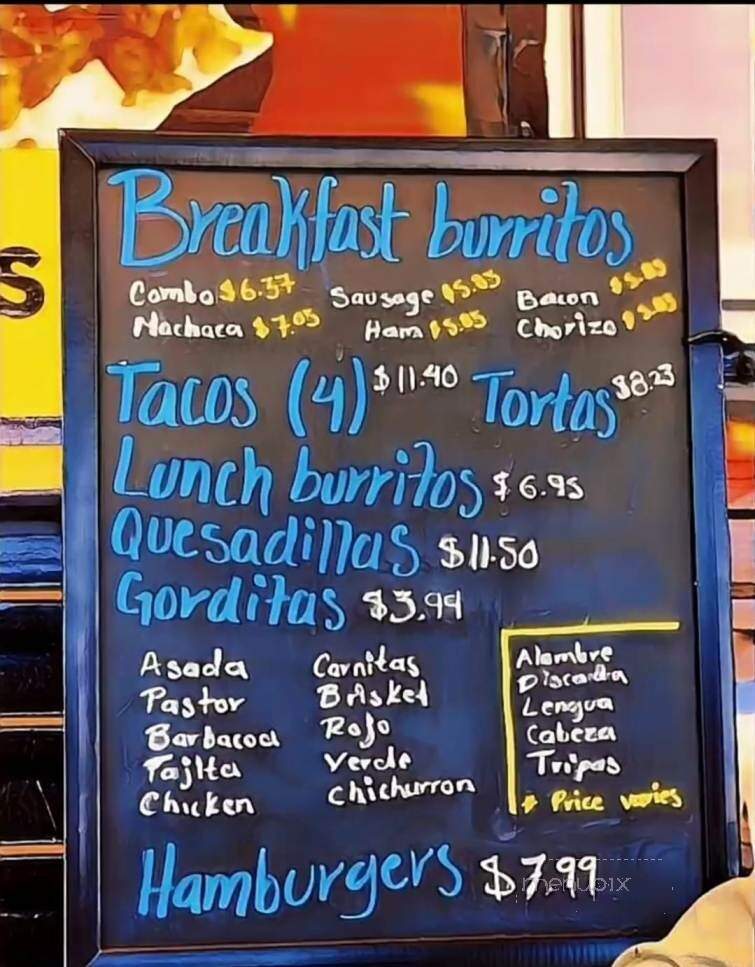 S
Breakfast burritos
Combo $6.37 Sausage $5.05 Bacon $5.05
Machaca $7.05 Ham $5.05 Chorizo $5.05
Tacos (4) $11.40 Tortas $8.23
Lunch burritos $6.95
Quesadillas $11.50
Gorditas $3.99
Asada Carnitas Alambre
Pastor Brisket Discada
Barbacoa Rojo Lengua
Fajita Verde Cabeza
Chicken Chicharron Tripas
* Price varies
Hamburgers $7.99
menupix